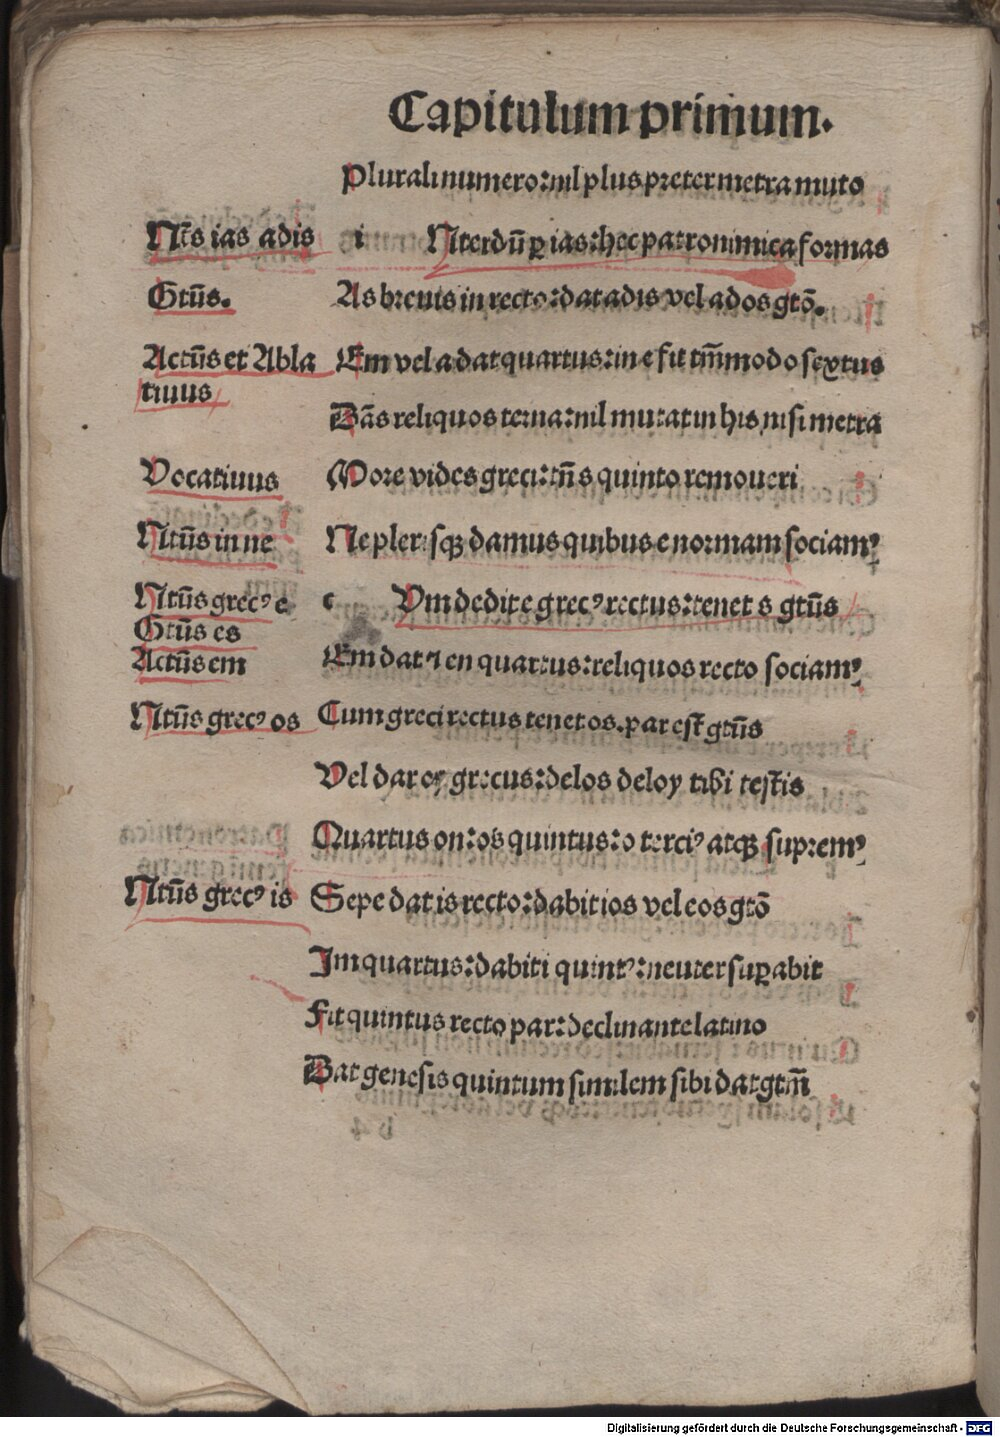 Capitulum primum.
Plurali numero: nil plus preter metra muto
Ntꝰs ias adis
i Nterdū ꝑ ias: hec patronimica formas
Gtūs.
As breuis in recto: dat adis vel ados gtō.
Actūs et Abla
tiuus
Em vel a dat quartus: in e fit tm̄modo sextus
Dās reliquos terna: nil mutat in his nisi metra
Vocatiuus
More vides greci: tn̄ s quinto remoueri
Ntūs in ne
Ne plerisqꝫ damus quibus e normam sociamꝰ
Ntūs grecꝰ e
c Vm dedit e grecꝰ rectus: tenet s gtūs
Gtūs es
Actūs em
Em dat ⁊ en quartus: reliquos recto sociamꝰ
Ntūs grecꝰ os
Cum greci rectus tenet os. par est gtūs
Vel dat oy grecus: delos deloy tibi testis
Quartus on: os quintus: o terciꝰ atqꝫ supremꝰ
Ntūs grecꝰ is
Sepe dat is recto: dabit ios vel eos gtō
Im quartus: dabit i quintꝰ: neuter suꝑabit
Fit quintus recto par: declinante latino
Dat genesis quintum similem sibi dat gtm̄